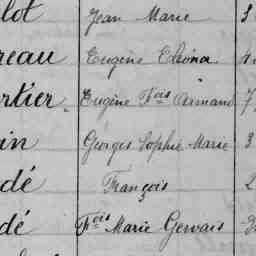 lot Jean Marie 3
reau Eugène
rtier Eugène Fois Armand 7
in Georges Sophie Marie 3
dé François 2
dé Fois Marie Gervais